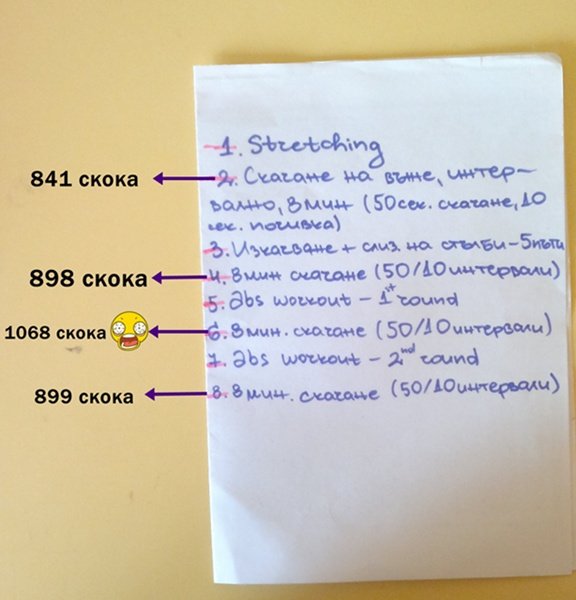 1. Stretching
841 скока
2. Скачане на въже, интер-
вално, 8 мин (50 сек. скачане, 10
сек. почивка)
3. Изкачване + слиз. на стълби - 5 пъти
898 скока
4. 8 мин скачане (50/10 интервали)
5. Abs workout - 1st round
1068 скока
6. 8 мин. скачане (50/10 интервали)
7. Abs workout - 2nd round
899 скока
8. 8 мин. скачане (50/10 интервали)